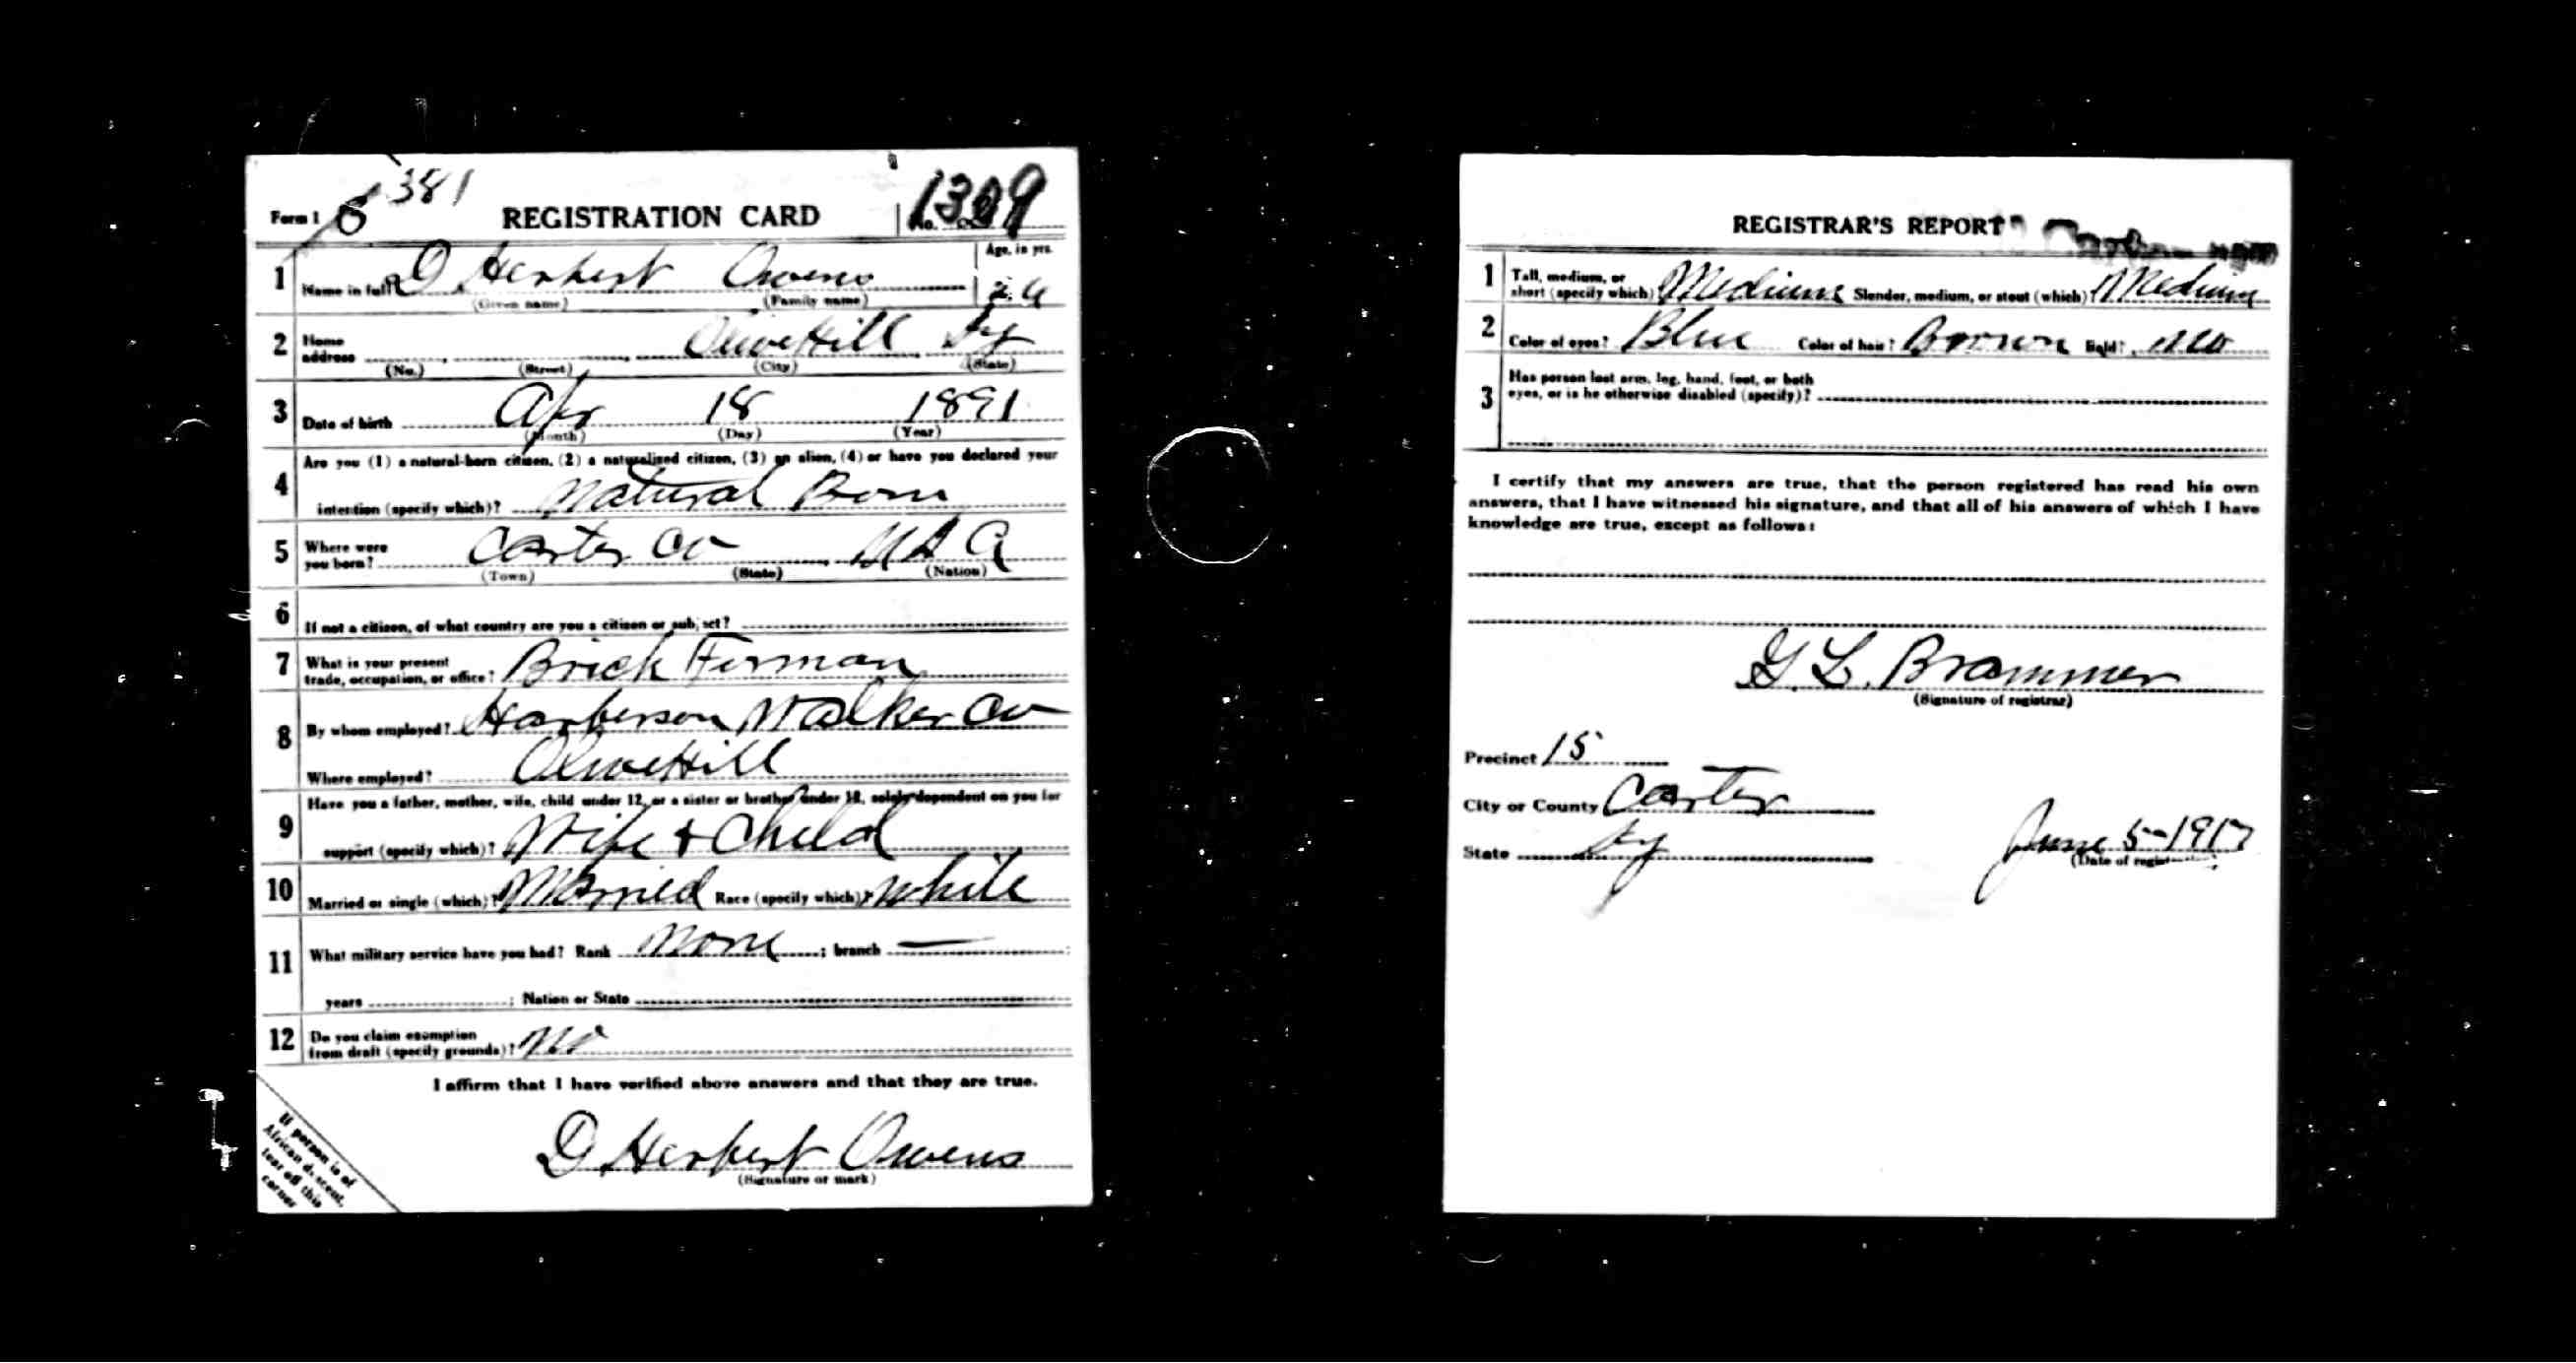 381
Form 1 8 REGISTRATION CARD No. 1309
Age, in yrs.
1 Name in full D Herbert Owens 26
(Given name) (Family name)
2 Home address OliveHill Ky
(No.) (Street) (City) (State)
3 Date of birth Apr 18 1891
(Month) (Day) (Year)
4 Are you (1) a natural-born citizen, (2) a naturalized citizen, (3) an alien, (4) or have you declared your
intention (specify which)? Natural Born
5 Where were you born? Carter Co U S A
(Town) (State) (Nation)
6 If not a citizen, of what country are you a citizen or subject?
7 What is your present trade, occupation, or office? Brick Firman
8 By whom employed? Harberson Walker Co
Where employed? OliveHill
9 Have you a father, mother, wife, child under 12, or a sister or brother under 12, solely dependent on you for
support (specify which)? Wife + Child
10 Married or single (which)? Married Race (specify which)? White
11 What military service have you had? Rank None ; branch —
years ; Nation or State
12 Do you claim exemption from draft (specify grounds)? No
I affirm that I have verified above answers and that they are true.
D Herbert Owens
(Signature or mark)
If person is of
African descent,
tear off this
corner
REGISTRAR'S REPORT
1 Tall, medium, or short (specify which)? Medium Slender, medium, or stout (which)? Medium
2 Color of eyes? Blue Color of hair? Brown Bald? No
3 Has person lost arm, leg, hand, foot, or both
eyes, or is he otherwise disabled (specify)?
I certify that my answers are true, that the person registered has read his own
answers, that I have witnessed his signature, and that all of his answers of which I have
knowledge are true, except as follows:
G. L. Brammer
(Signature of registrar)
Precinct 15
City or County Carter
State Ky
June 5-1917
(Date of registration)